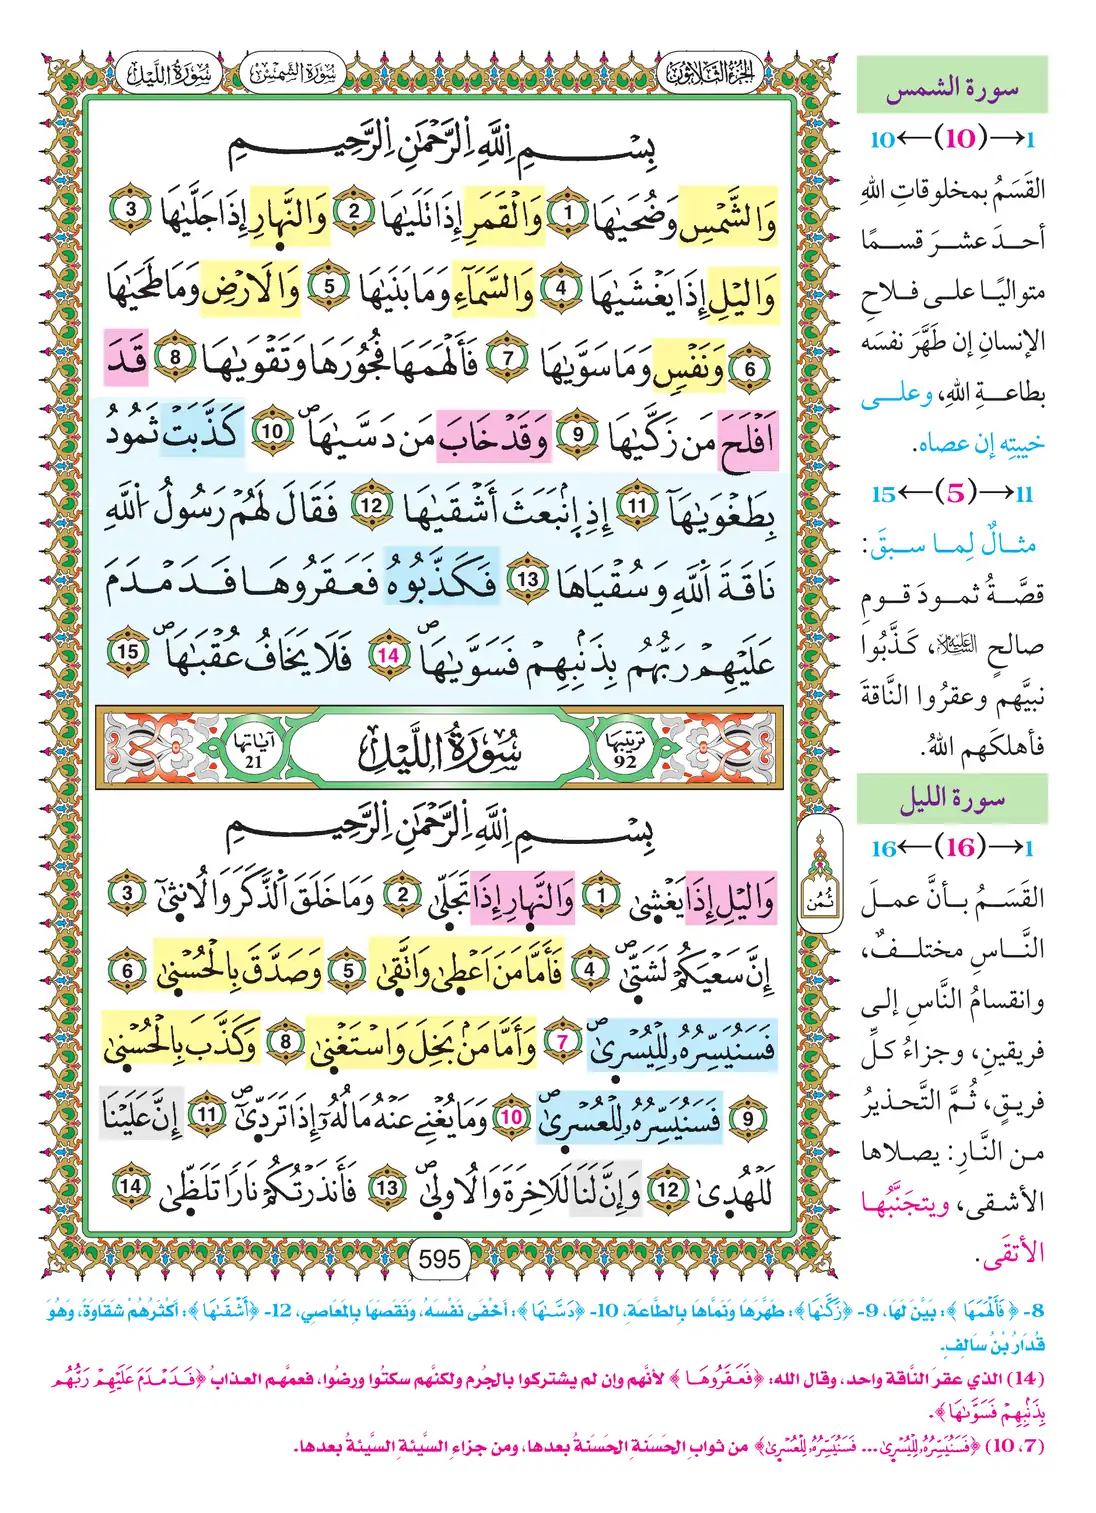 الجزء الثلاثون
سورة الشمس
سورة الليل
بِسْمِ اِ۬للَّهِ اِ۬لرَّحْمَٰنِ اِ۬لرَّحِيمِ
وَالشَّمْسِ وَضُحَيٰهَا 1 وَالْقَمَرِ إِذَا تَلَيٰهَا 2 وَالنَّهَارِ إِذَا جَلَّيٰهَا 3
وَاليْلِ إِذَا يَغْشَيٰهَا 4 وَالسَّمَآءِ وَمَا بَنَيٰهَا 5 وَالَارْضِ وَمَا طَحَيٰهَا
6 وَنَفْسٍ وَمَا سَوَّيٰهَا 7 فَأَلْهَمَهَا فُجُورَهَا وَتَقْوَيٰهَا 8 قَدَ
اَفْلَحَ مَن زَكَّيٰهَا 9 وَقَدْ خَابَ مَن دَسَّيٰهَا 10 كَذَّبَتْ ثَمُودُ
بِطَغْوَيٰهَآ 11 إِذِ اِ۪نۢبَعَثَ أَشْقَيٰهَا 12 فَقَالَ لَهُمْ رَسُولُ اُ۬للَّهِ
نَاقَةَ اَ۬للَّهِ وَسُقْيَاهَا 13 فَكَذَّبُوهُ فَعَقَرُوهَا فَدَمْدَمَ
عَلَيْهِمْ رَبُّهُم بِذَنۢبِهِمْ فَسَوَّيٰهَا 14 فَلَا يَخَافُ عُقْبَٰهَا 15
ترتيبها 92
سُورَةُ اللَّيْلِ
آياتها 21
بِسْمِ اِ۬للَّهِ اِ۬لرَّحْمَٰنِ اِ۬لرَّحِيمِ
وَاليْلِ إِذَا يَغْشَىٰ 1 وَالنَّهَارِ إِذَا تَجَلَّىٰ 2 وَمَا خَلَقَ اَ۬لذَّكَرَ وَالُانثَىٰٓ 3
إِنَّ سَعْيَكُمْ لَشَتَّىٰ 4 فَأَمَّا مَنَ اَعْطَىٰ وَاتَّقَىٰ 5 وَصَدَّقَ بِالْحُسْنَىٰ 6
فَسَنُيَسِّرُهُۥ لِلْيُسْرَىٰ 7 وَأَمَّا مَنۢ بَخِلَ وَاسْتَغْنَىٰ 8 وَكَذَّبَ بِالْحُسْنَىٰ
9 فَسَنُيَسِّرُهُۥ لِلْعُسْرَىٰ 10 وَمَا يُغْنِي عَنْهُ مَالُهُۥٓ إِذَا تَرَدَّىٰٓ 11 إِنَّ عَلَيْنَا
لَلْهُدَىٰ 12 وَإِنَّ لَنَا لَلَاخِرَةَ وَالُاولَىٰ 13 فَأَنذَرْتُكُمْ نَارًا تَلَظَّىٰ 14
ثُمُن
595
سورة الشمس
1→(10)←10
القَسَمُ بمخلوقاتِ اللهِ
أحدَ عشرَ قسمًا
متواليًا على فلاحِ
الإنسانِ إن طَهَّرَ نفسَه
بطاعةِ اللهِ، وعلى
خيبتِه إن عصاه.
11→(5)←15
مثالٌ لِما سبقَ:
قصَّةُ ثمودَ قومِ
صالحٍ عليه السلام، كَذَّبُوا
نبيَّهم وعقرُوا النَّاقةَ
فأهلكَهم اللهُ.
سورة الليل
1→(16)←16
القَسَمُ بأنَّ عملَ
النَّاسِ مختلفٌ،
وانقسامُ النَّاسِ إلى
فريقينِ، وجزاءُ كلِّ
فريقٍ، ثُمَّ التَّحذيرُ
من النَّارِ: يصلاها
الأشقى، ويتجنَّبُها
الأتقَى.
8- ﴿فَأَلْهَمَهَا﴾: بَيَّنَ لَهَا، 9- ﴿زَكَّىٰهَا﴾: طَهَّرَهَا وَنَمَّاهَا بِالطَّاعَةِ، 10- ﴿دَسَّىٰهَا﴾: أَخْفَى نَفْسَهُ، وَنَقَصَهَا بِالمَعَاصِي، 12- ﴿أَشْقَىٰهَا﴾: أَكْثَرُهُمْ شَقَاوَةً، وَهُوَ
قُدَارُ بْنُ سَالِفٍ.
(14) الذي عقرَ النَّاقةَ واحد، وقال الله: ﴿فَعَقَرُوهَا﴾ لأنَّهم وإن لم يشتركوا بالجُرم ولكنَّهم سكتُوا ورضُوا، فعمَّهم العذابُ ﴿فَدَمْدَمَ عَلَيْهِمْ رَبُّهُم
بِذَنۢبِهِمْ فَسَوَّىٰهَا﴾.
(7، 10) ﴿فَسَنُيَسِّرُهُۥ لِلْيُسْرَىٰ ... فَسَنُيَسِّرُهُۥ لِلْعُسْرَىٰ﴾ من ثوابِ الحَسَنةِ الحَسَنةُ بعدها، ومن جزاءِ السَّيئةِ السَّيئةُ بعدها.